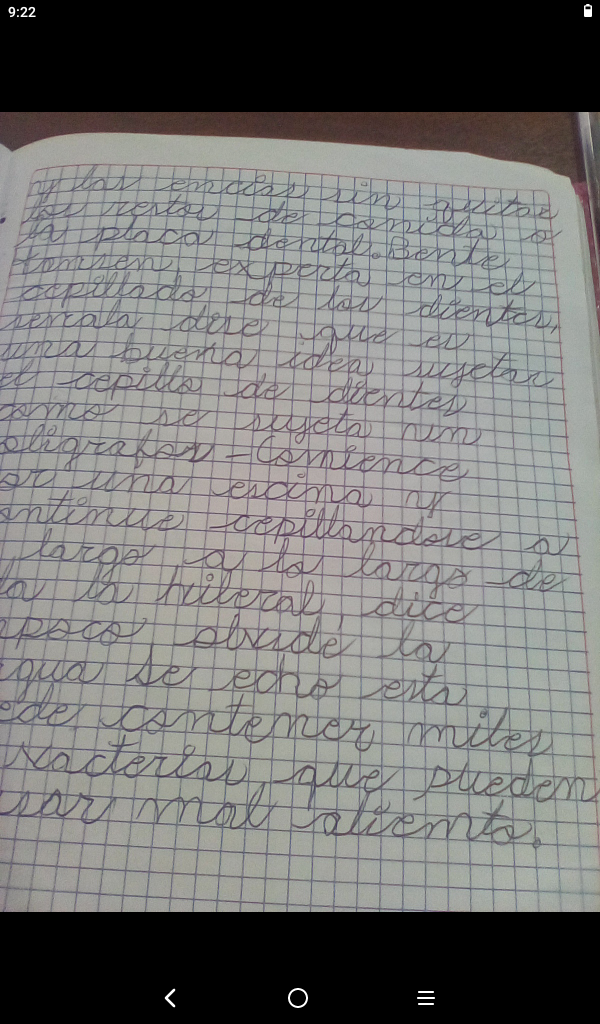 9:22
y las encias sin quitar
los restos de comida o
la placa dental. Bente
tomsen experta en el
cepillado de los dientes,
senala dise que es
una buena idea sujetar
el cepillo de dientes
como se sujeta num
oligrafos - Comience
or una escina y
ontinue cepillandose a
largo a lo largo de
la la hileral, dice
apoco olvide la
gua de echo esta
ede contener miles
Vacterias que pueden
sar mal aliento.